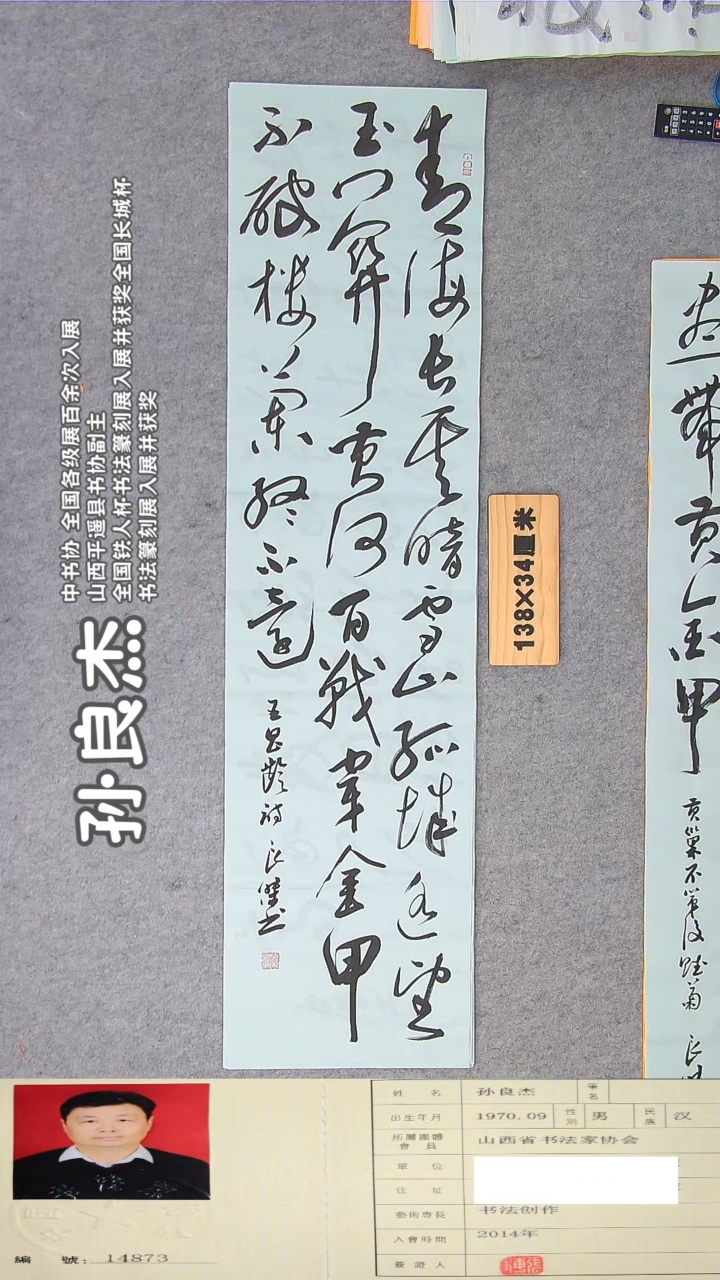 青海長雲暗雪山孤城遥望
玉门關黄河百戰穿金甲
不破楼蘭终不還
王昌龄诗 良傑书
138×34厘米
盡帶黄金甲
黄巢不第后赋菊 良
孙良杰
中书协 全国各级展百余次入展
山西平遥县书协副主
全国铁人杯书法篆刻展入展并获奖全国长城杯
书法篆刻展入展并获奖
編 號: 14873
姓 名 孙良杰 筆名
出生年月 1970.09 性別 男 民族 汉
所屬團體會員 山西省书法家协会
單 位
住 址
藝術專長 书法创作
入會時間 2014年
簽證人